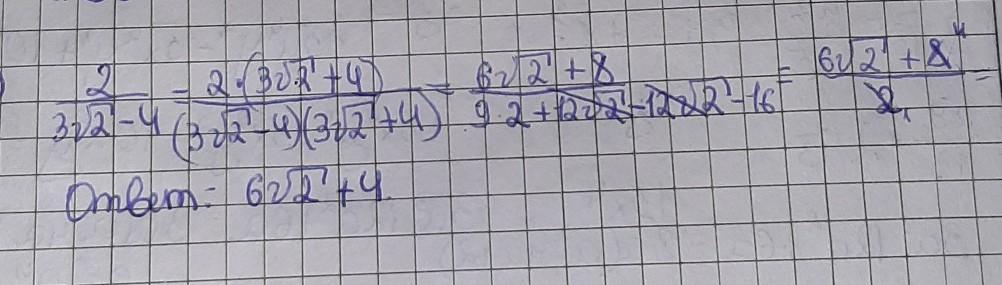 2/(3√2 - 4) = 2·(3√2 + 4)/((3√2 - 4)(3√2 + 4)) = (6√2 + 8)/(9·2 + 12√2 - 12√2 - 16) = (6√2 + 8 4)/(2 1) =
Ответ: 6√2 + 4.